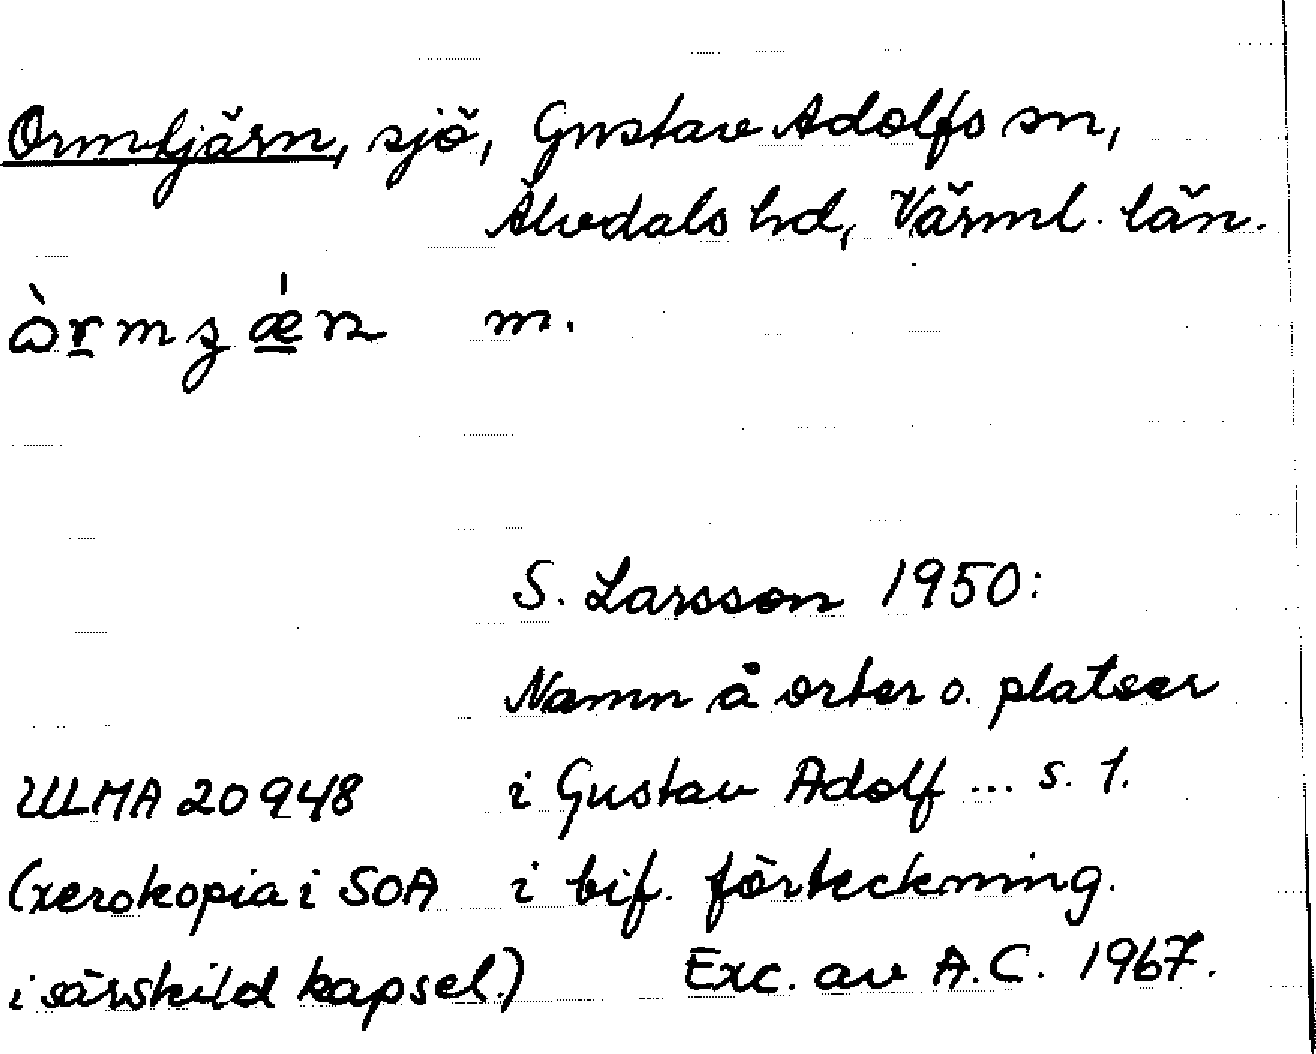 Ormtjärn, sjö, Gustav Adolfs sn,
Älvdals hd, Värml. län.
ɷ̀r̲mʒǽ̲n m.
S. Larsson 1950:
Namn å orter o. platser
ULMA 20948 i Gustav Adolf ... s. 1.
(xerokopia i SOA i bif. förteckning.
i särskild kapsel.) Exc. av A.C. 1967.